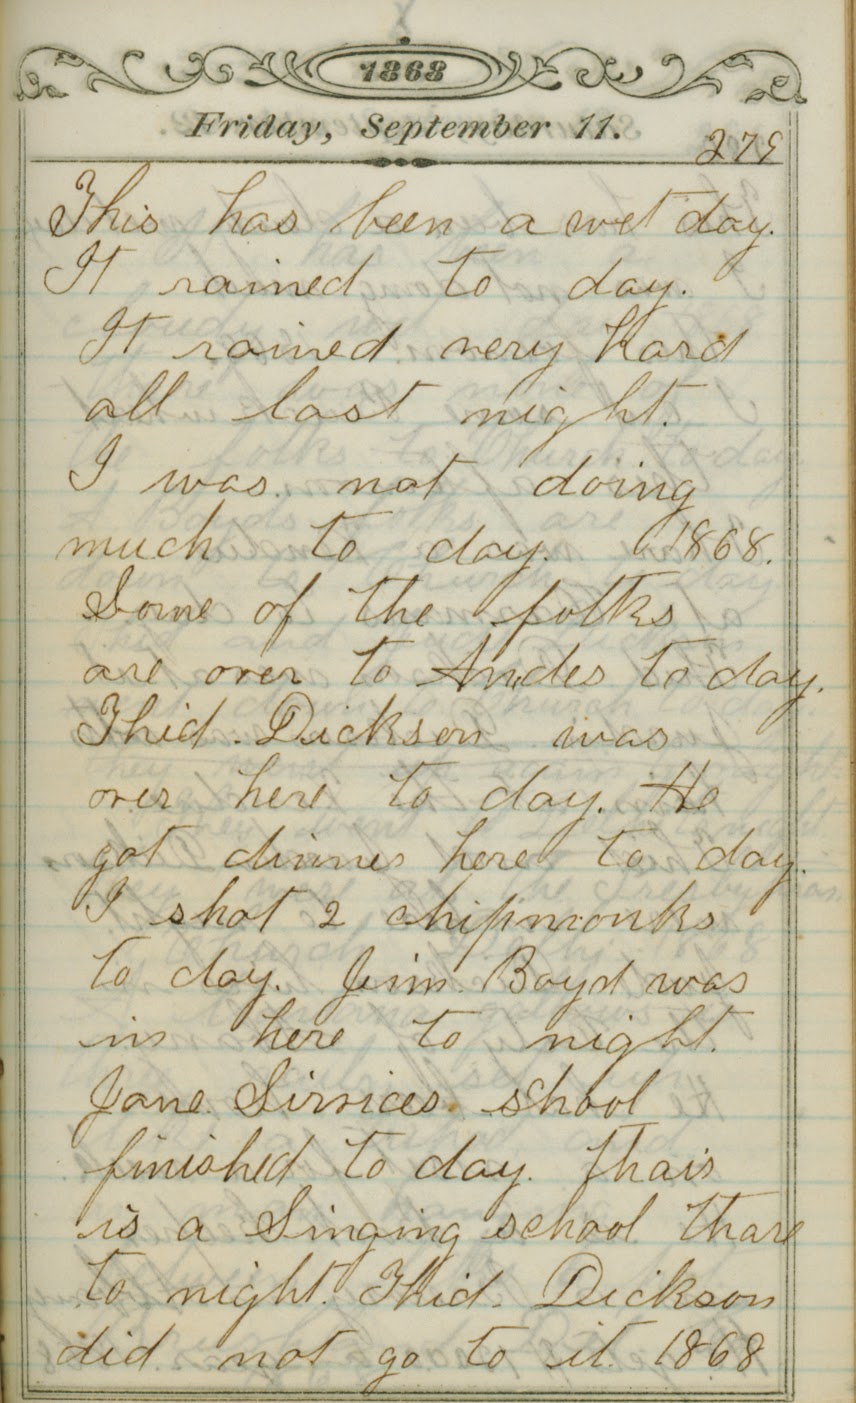 1868
Friday, September 11.
279
This has been a wet day.
It rained to day.
It rained very hard
all last night.
I was not doing
much to day. 1868.
Some of the folks
are over to Andes to day.
Thid. Dickson was
over here to day. He
got dinner here to day.
I shot 2 chipmonks
to day. Jim Boyd was
in here to night.
Jane Sirvices school
finished to day. thair
is a Singing school thare
to night. Thid. Dickson
did not go to it. 1868